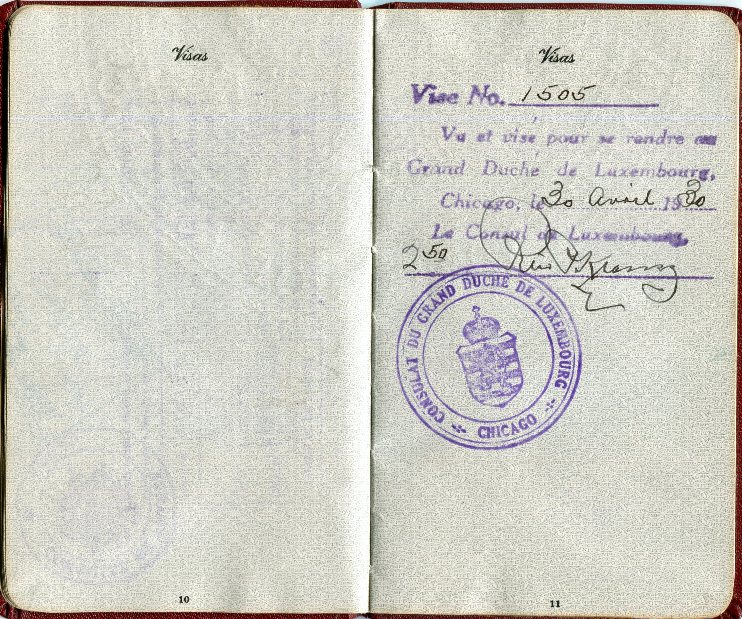 Visas
10
Visas
Vise No. 1505
Vu et visé pour se rendre au
Grand Duché de Luxembourg,
Chicago, le 30 Avril 1930
Le Consul de Luxembourg,
2 50
CONSULAT DU GRAND DUCHÉ DE LUXEMBOURG
CHICAGO
11